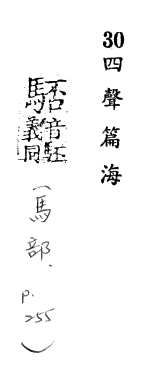 30四聲篇海
音駓
義同
(馬部,
p.
255)